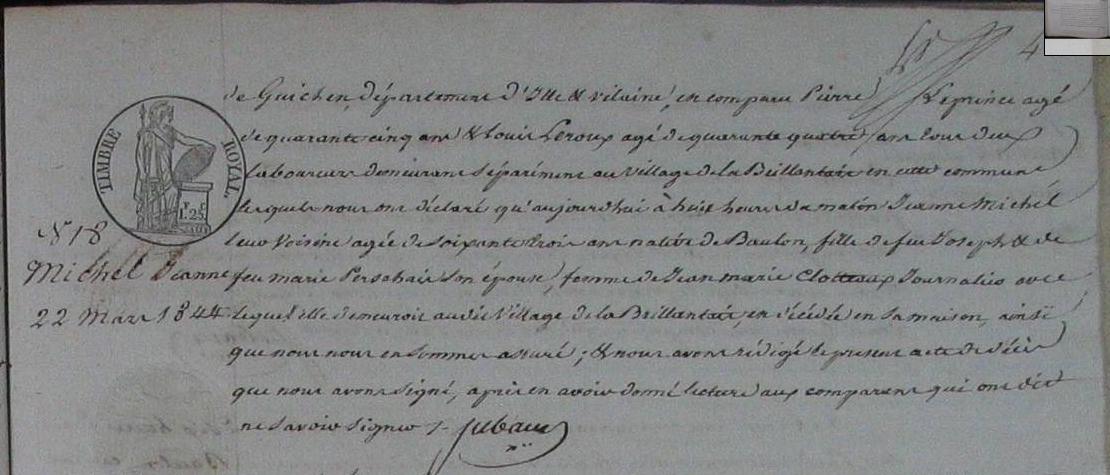 4
de Guichen, département d'Ille & vilaine, en comparu Pierre Leprince agé
de quarante cinq ans & Louis Leroux agé de quarante quatre ans tous deux
laboureurs demeurans séparément au village de la Brillantais en cette commune
lesquels nous ont déclaré qu'aujourdhui à huit heures du matin Jeanne Michel
leur voisine agée de soixante trois ans native de Baulon, fille de feu Joseph & de
feu marie Persehais son épouse, femme de Jean marie Clotteaux Journalier avec
lequel elle demeuroit au dit village de la Brillantais, en décédée en sa maison, ainsi
que nous nous en sommes assuré ; & nous avons rédigé le present acte de décès
que nous avons signé, après en avoir donné lecture aux comparens qui ont dit
ne savoir signer /-
TIMBRE ROYAL
F C
1.25
N 18
Michel Jeanne
22 Mars 1844